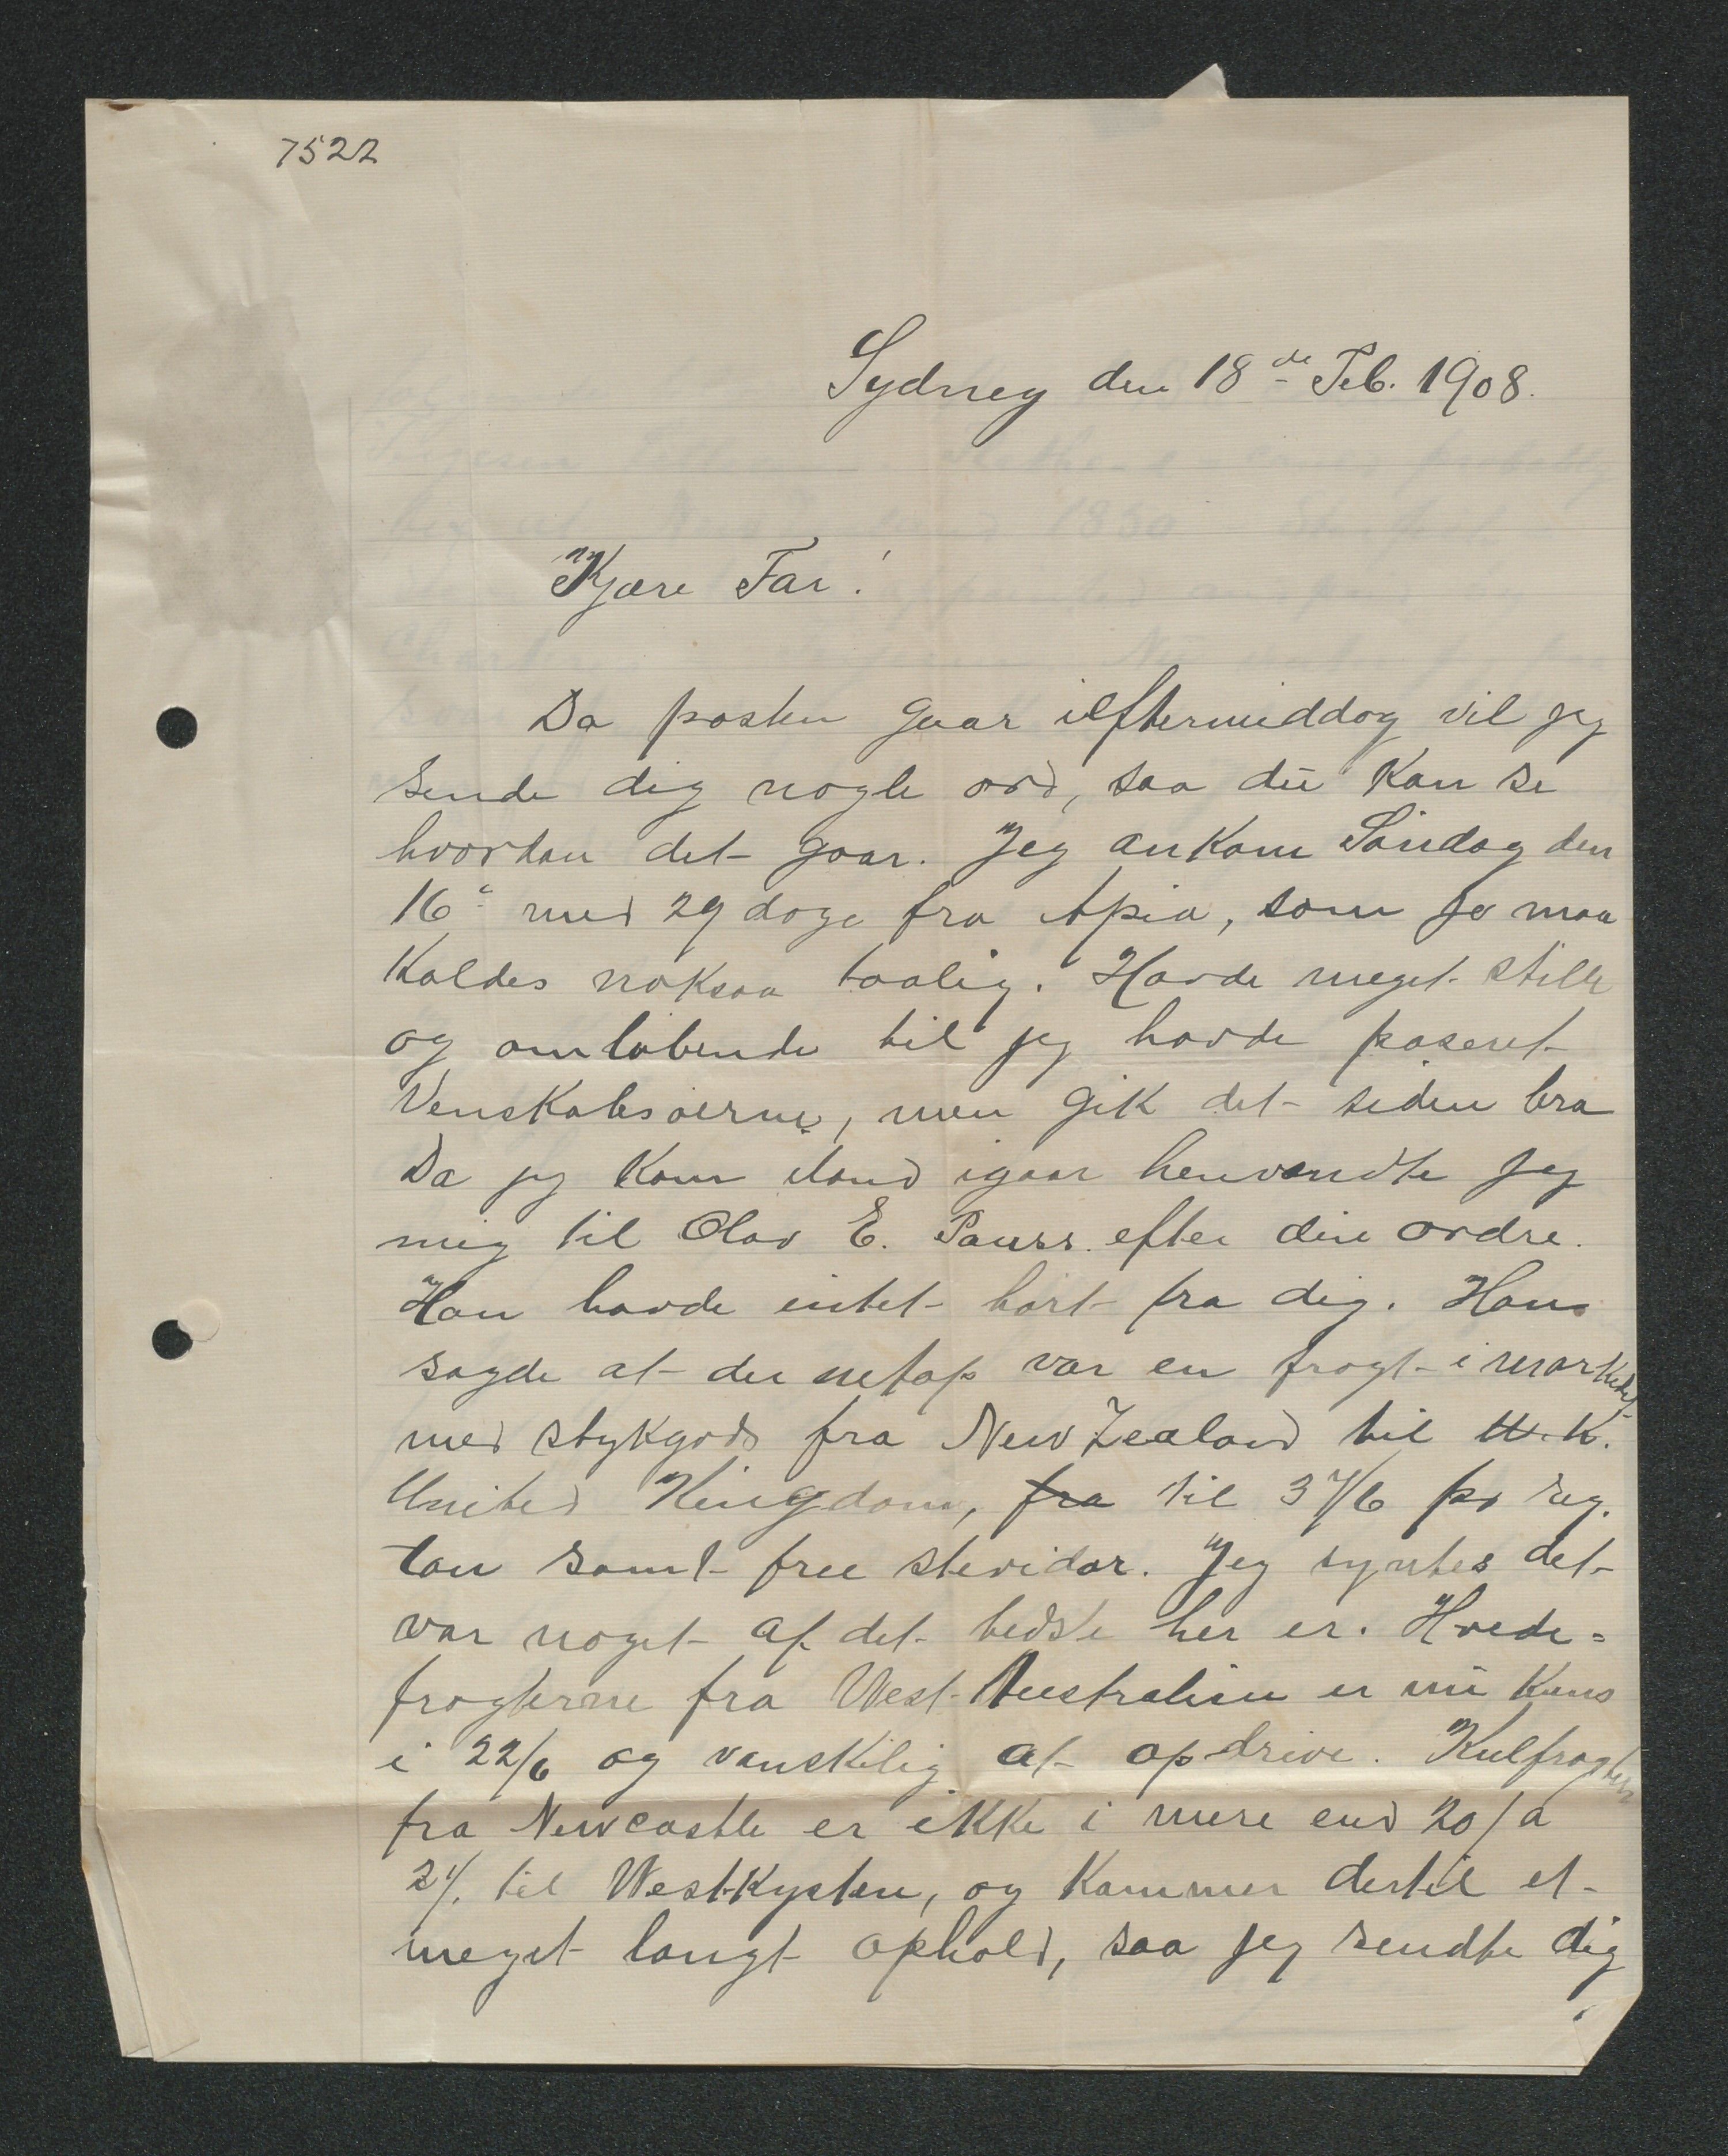 7522
Sydney den 18de Feb. 1908.
Kjære Far!
Da posten gaar ieftermiddag vil jeg
sende dig nogle ord, saa du kan se
hvordan det gaar. Jeg ankom Søndag den
16de med 29 dage fra Apia, som jo maa
kaldes noksaa taalig. Havde meget stille
og omløbende til jeg havde paseret
Venskabsøerne, men gik det siden bra
Da jeg kom iland igaar henvendte jeg
mig til Olav E. Pauss. efter din ordre.
Han havde intet hørt fra dig. Han
sagde at der netop var en fragt i markedet
med stykgods fra New Zealand til U.K.
United Kingdom, fra til 37/6 pr reg.
ton samt free stevidor. Jeg syntes det
var noget af det bedste her er. Hvede-
fragterne fra West-Australien er nu kun
i 22/6 og vanskelig at opdrive. Kulfragten
fra Newcastle er ikke i mere end 20/ a
21/. til Westkysten, og kommer dertil et
meget langt ophold, saa jeg sendte dig